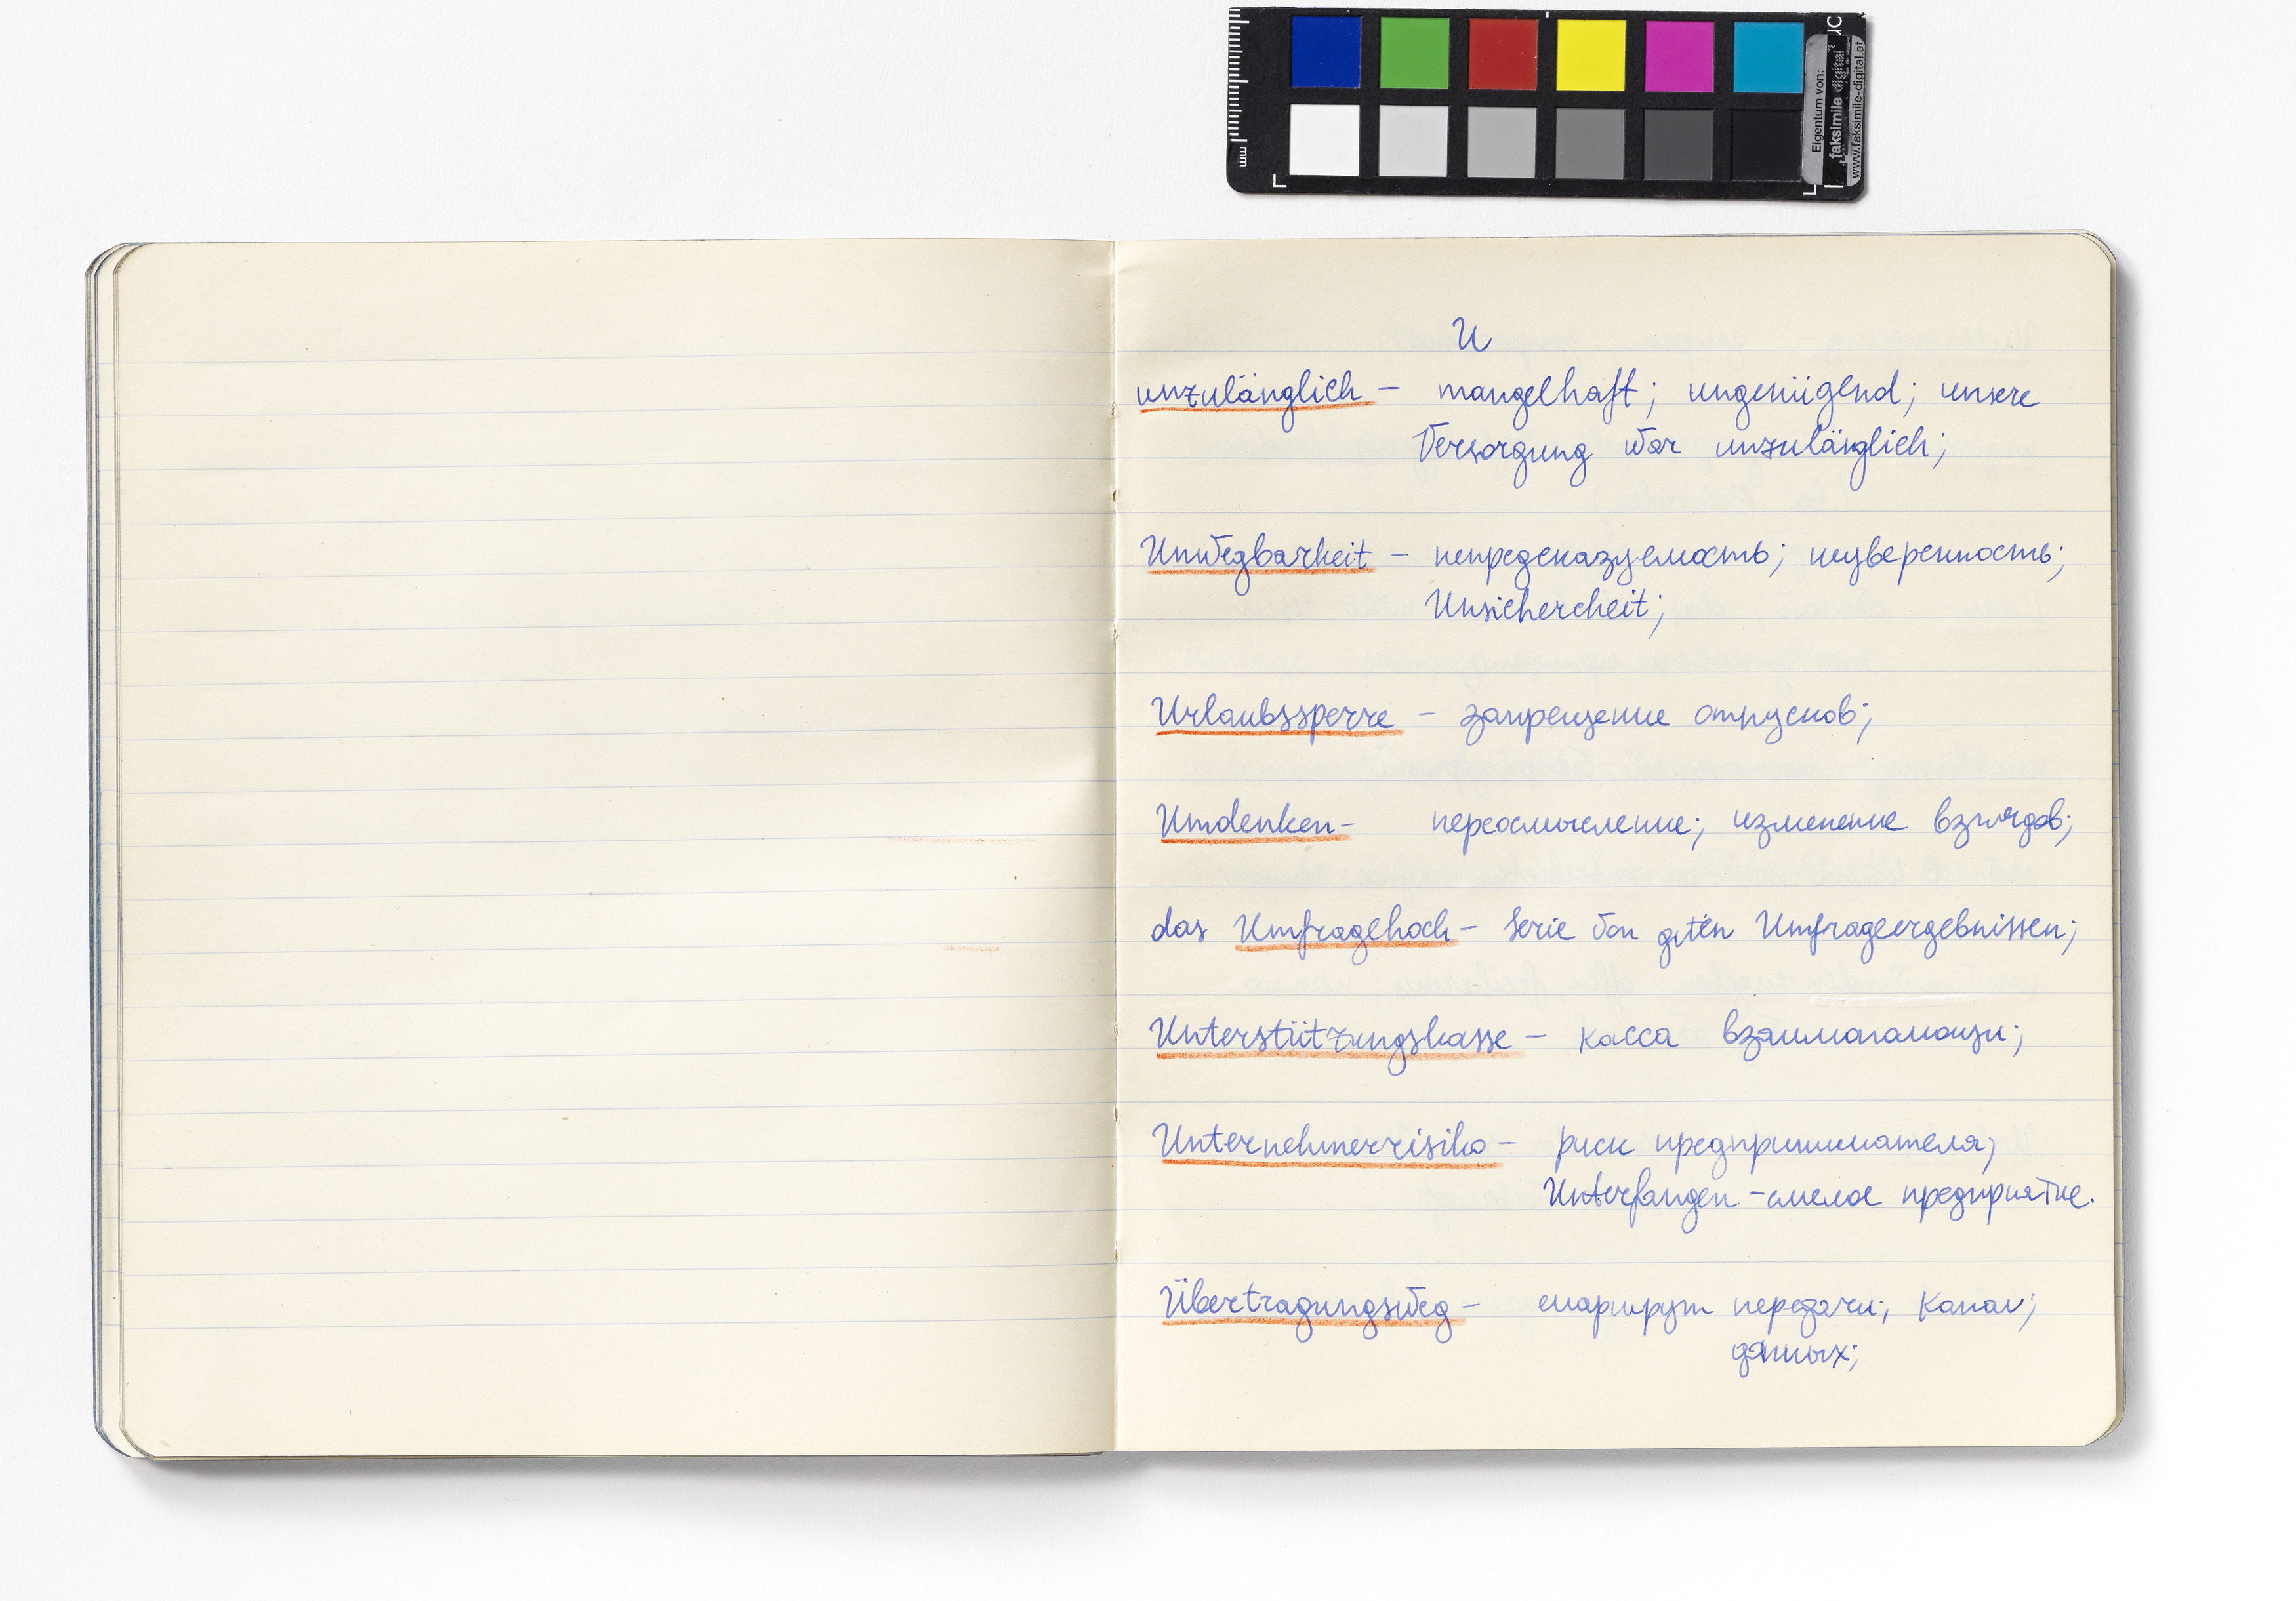 U
unzulänglich – mangelhaft; ungenügend; unsere
Versorgung war unzulänglich;
Unwegbarkeit – непредсказуемость; неуверенность;
Unsichercheit;
Urlaubssperre – запрещение отпусков;
Umdenken – переосмысление; изменение взглядов;
das Umfragehoch – Serie von guten Umfrageergebnissen;
Unterstützungskasse – касса взаимопомощи;
Unternehmerrisiko – риск предпринимателя;
Unterfangen – смелое предприятие.
Übertragungsweg – маршрут передачи; канал;
данных;
mm
Eigentum von:
faksimile digital
www.faksimile-digital.at